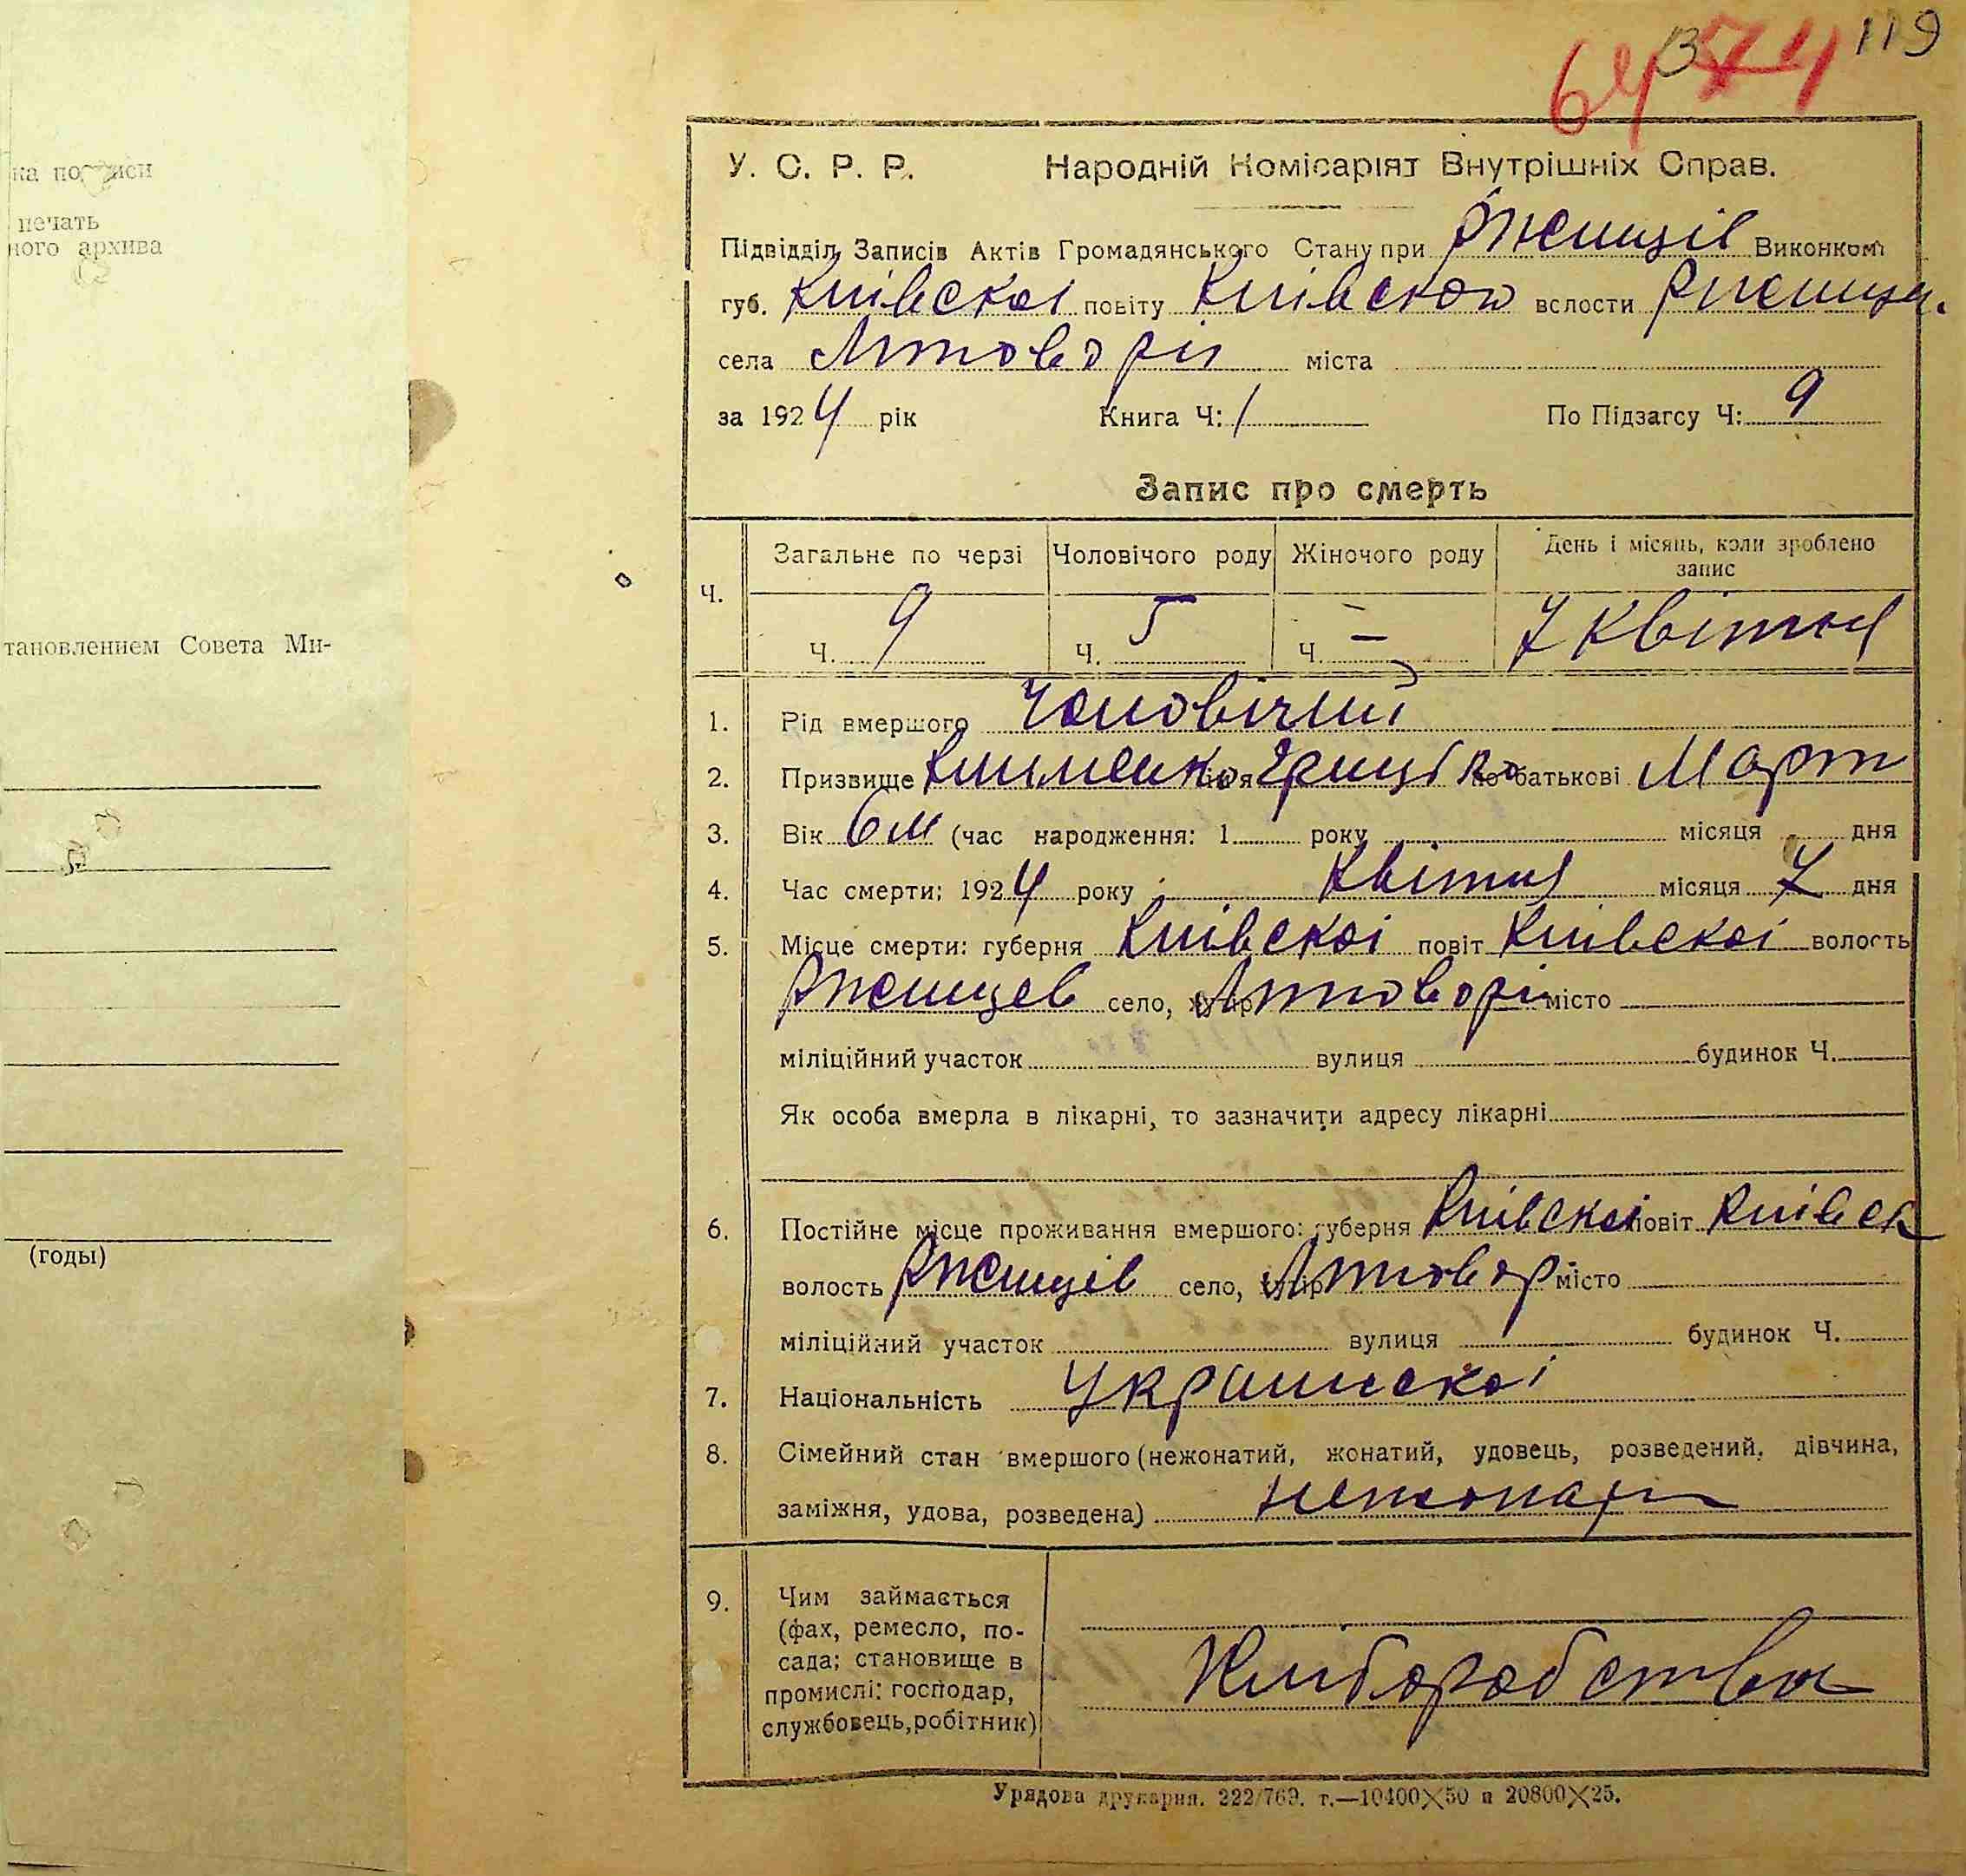 119
64
В
74
ка подписи
печать
ного архива
тановлением Совета Ми-
(годы)
У. С. Р. Р. Народній Комісаріят Внутрішніх Справ.
Підвідділ Записів Актів Громадянського Стану при Ржищів Виконком
губ. Київскоі повіту Київского вслости Ржищ.
села міста
за 1924 рік Книга Ч: 1 По Підзагсу Ч: 9
Запис про смерть
Ч. Загальне по черзі Чоловічого роду Жіночого роду День і місяць, коли зроблено
запис
Ч. 9 Ч. 5 Ч. — 7 Квітня
1. Рід вмершого Чоловічий
2. Призвище Клименко ім'я Грицько по батькові Март
3. Вік 6 м (час народження: 1 року місяця дня
4. Час смерти: 1924 року Квітня місяця 7 дня
5. Місце смерти: губерня Київскоі повіт Київскоі волость
Ржищев село, хутір місто
міліційний участок вулиця будинок Ч.
Як особа вмерла в лікарні, то зазначити адресу лікарні
6. Постійне місце проживання вмершого: губерня Київскоі повіт Київск
волость Ржищів село, хутір місто
міліційний участок вулиця будинок Ч.
7. Національність Украинскоі
8. Сімейний стан вмершого (нежонатий, жонатий, удовець, розведений, дівчина,
заміжня, удова, розведена)
9. Чим займається
(фах, ремесло, по-
сада; становище в
промислі: господар,
службовець, робітник)
Хліборобства
Урядова друкарня. 222/769. т.—10400×50 п 20800×25.